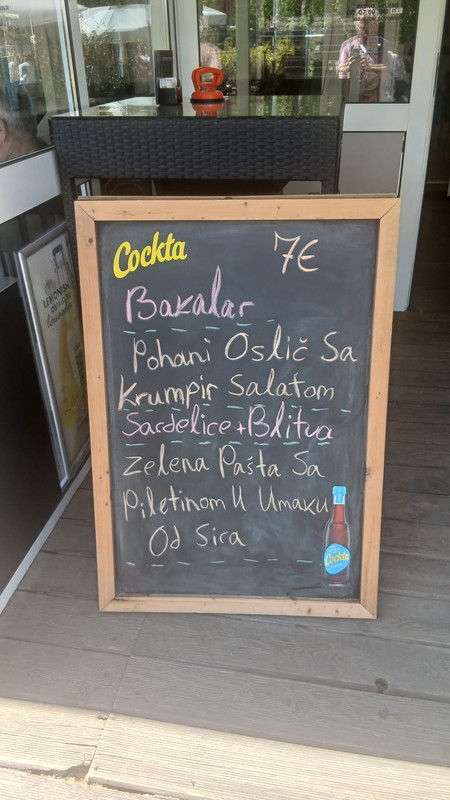 Cockta
7€
Bakalar
Pohani Oslič Sa
Krumpir Salatom
Sardelice + Blitva
Zelena Pašta Sa
Piletinom U Umaku
Od Sira
Cockta